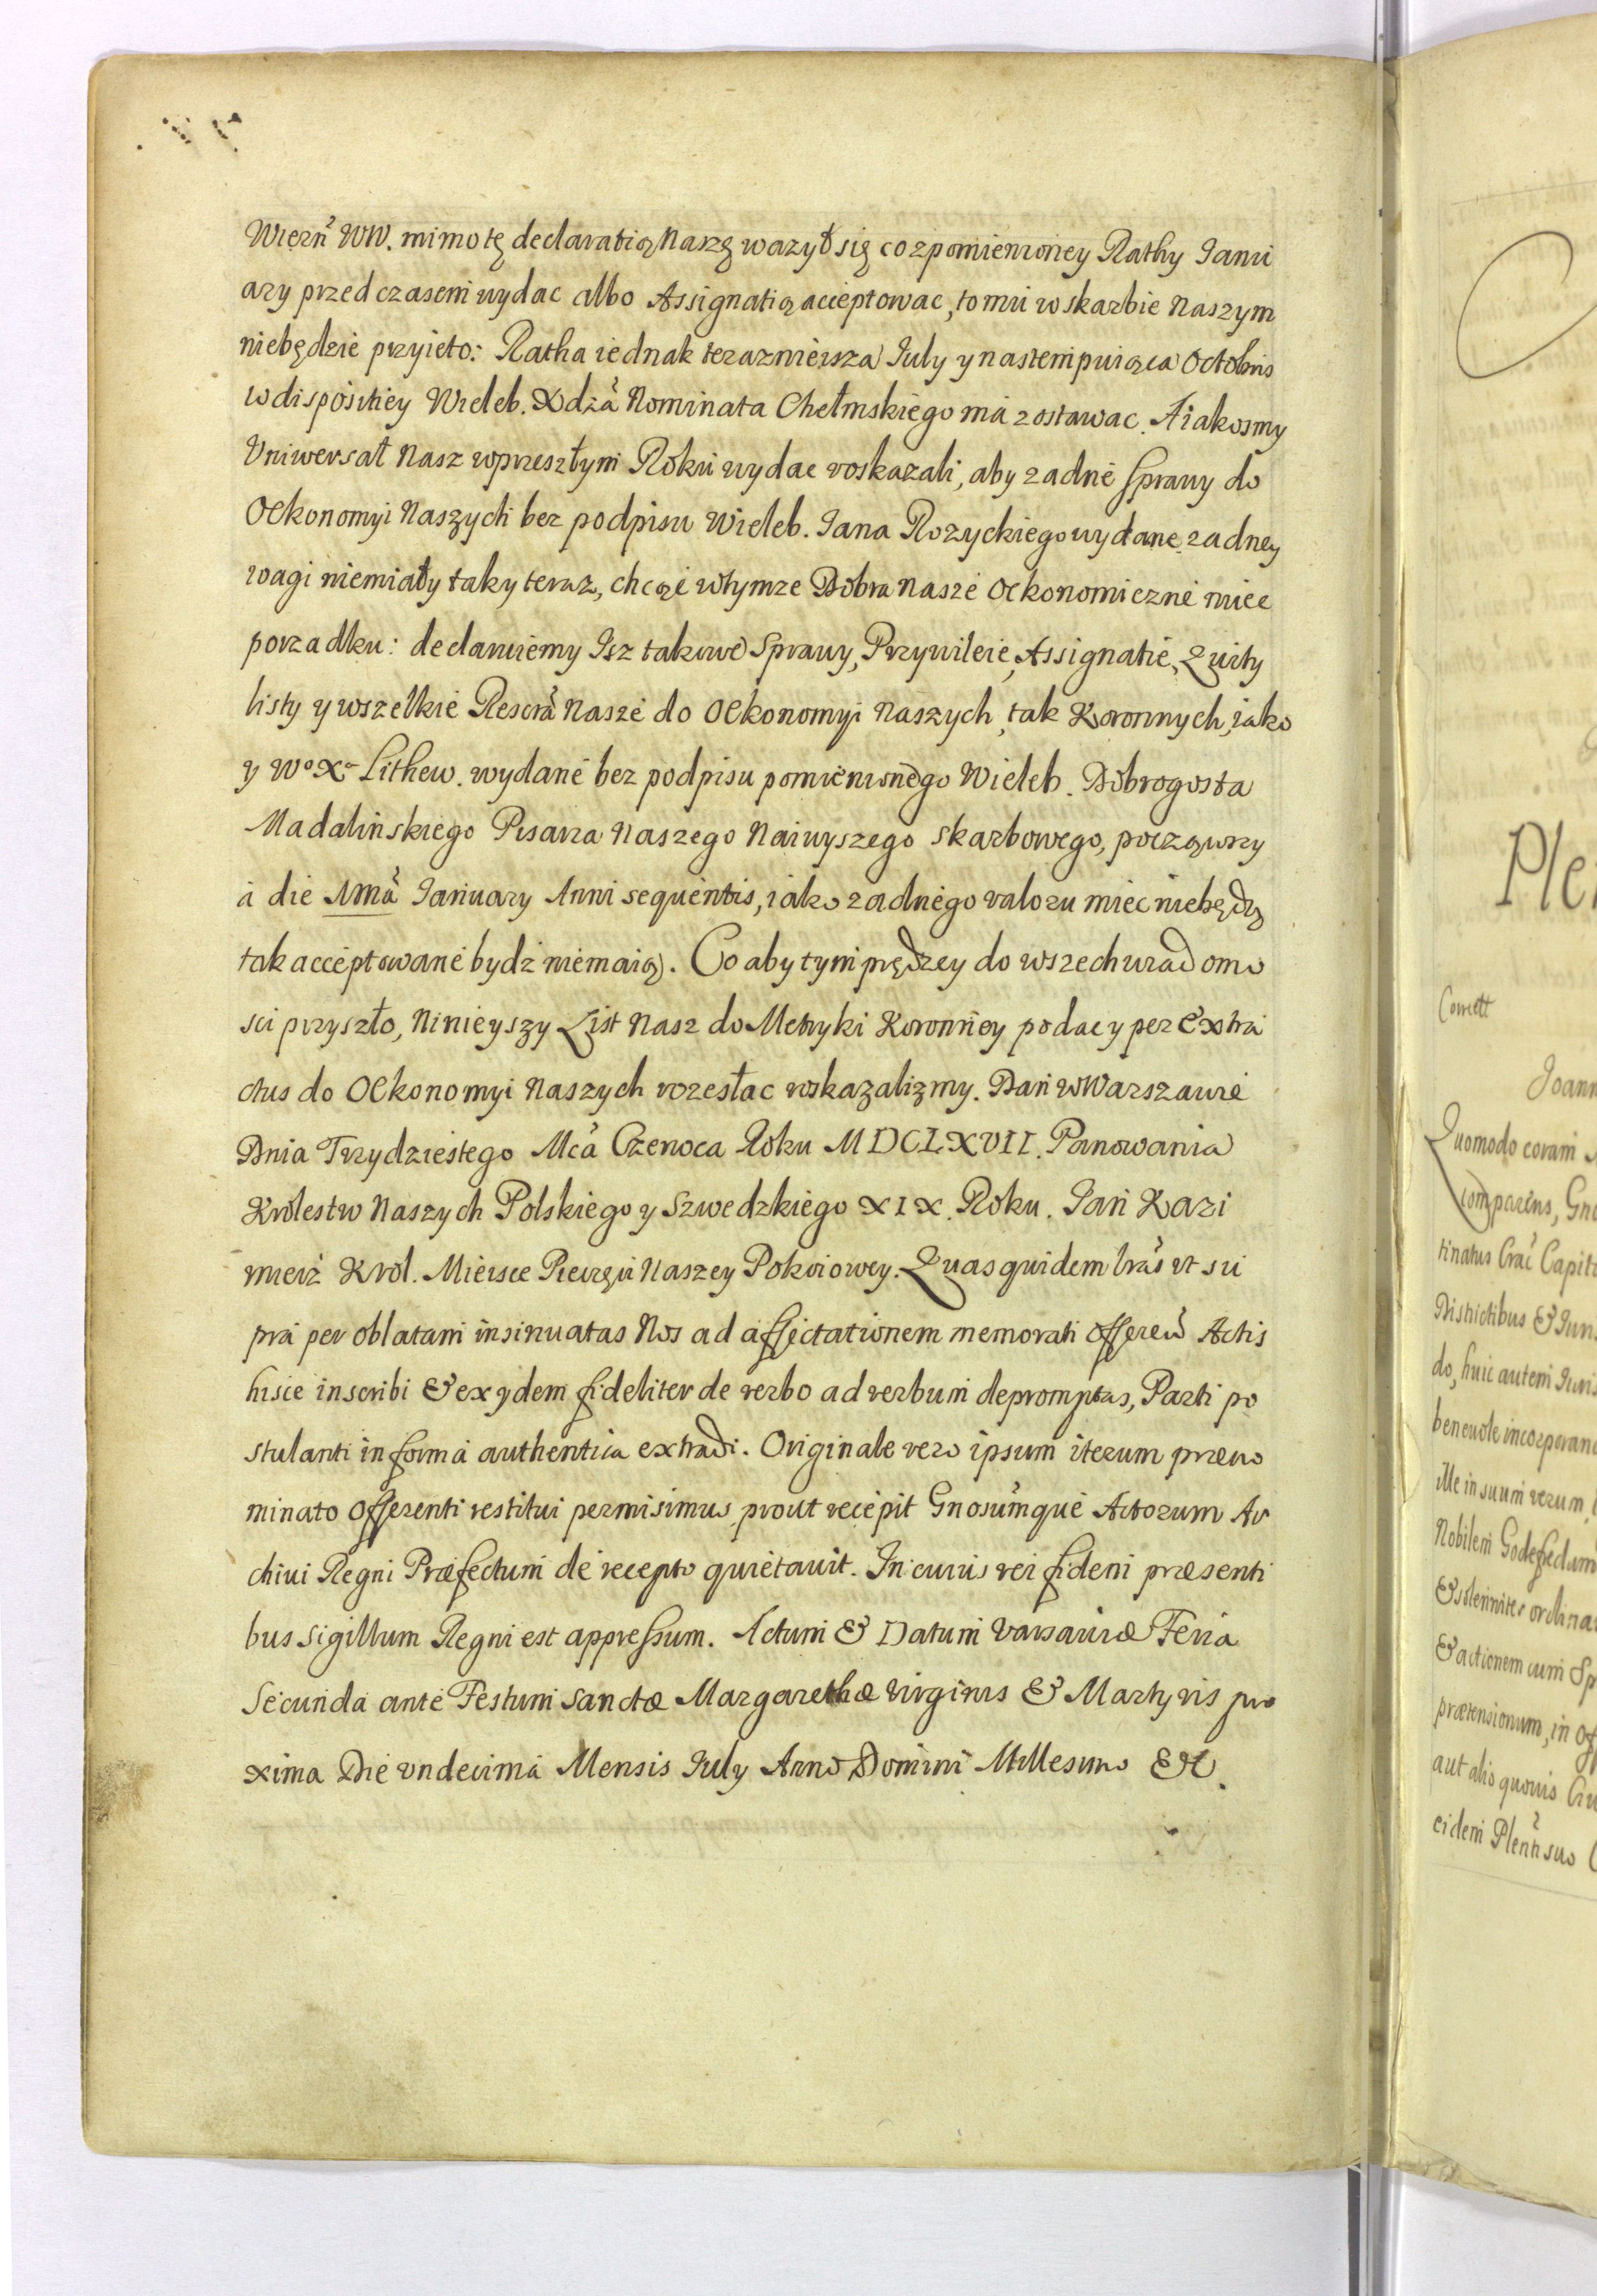 Wiern̄ WW. mimo tę declaratią Naszę wazył się co z pomienioney Rathy Janu
ary przed czasem wydac albo Assignatią acceptowac, to mu w skarbie Naszym
niebędzie przyieto: Ratha iednak terazniejsza July y nastempuiąca Octobris
w dispositiey Wieleb. Xdza Nominata Chełmskiego ma zostawac. A iakosmy
Uniwersał Nasz w przeszłym Roku wydac roskazali, aby zadne Sprawy do
Oekonomyi Naszych bez podpisu Wieleb. Jana Rozyckiego wydane zadney
wagi niemiały tak y teraz, chcąc w tymze Dobra Nasze Oekonomiczne miec
porzadku: declaruiemy Isz takowe Sprawy, Przywileie, Assignatie, Quity
listy y wszelkie Rescrã Nasze do Oekonomyi Naszych, tak Koronnych, iako
y Wo Xa Lithew. wydane bez podpisu pomienionego Wieleb. Dobrogosta
Madalińskiego Pisarza Naszego Naiwyszego skarbowego, począwszy
a die 1mã January Anni sequentis, iako zadnego valoru miec niebędą
tak acceptowane bydz niemaią. Co aby tym prędzey do wszech wiadomo
sci przyszło, Ninieyszy List Nasz do Metryki Koronney podac y per Extra
ctus do Oekonomyi Naszych rozesłac roskazalizmy. Dan w Warszawie
Dnia Trzydziestego Mcã Czerwca Roku MDCLXVII. Panowania
Krolestw Naszych Polskiego y Szwedzkiego XIX. Roku. Jan Kazi
mierz Krol. Mieisce Pieczęci Naszey Pokoiowey. Quas quidem lrãs ut su
pra per oblatam insinuatas Nos ad affectationem memorati Offereñ Actis
hisce inscribi & ex ijdem fideliter de verbo ad verbum depromptas, Parti po
stulanti in forma authentica extradi. Originale vero ipsum iterum præno
minato Offerenti restitui permisimus, prout recepit Gnosumque Actorum Ar
chivi Regni Præfectum de recepto quietavit. In cuius rei fidem præsenti
bus Sigillum Regni est appressum. Actum & Datum Varsaviæ Feria
Secunda ante Festum Sanctæ Margarethæ Virginis & Martyris pro
xima Die undecima Mensis July Anno Domini Millesimo &c.
Joann
Quomodo coram
comparens, Gno
tinatus Crac̃ Capit
Districtibus & Juri
do, huic autem Juris
benevole incorporan
ille in suum verum
Nobilem Godefridum
& solenniter ordina
& actionem cum Sp
prætensionum, in Of
aut alio quovis
eidem Pleñ suo